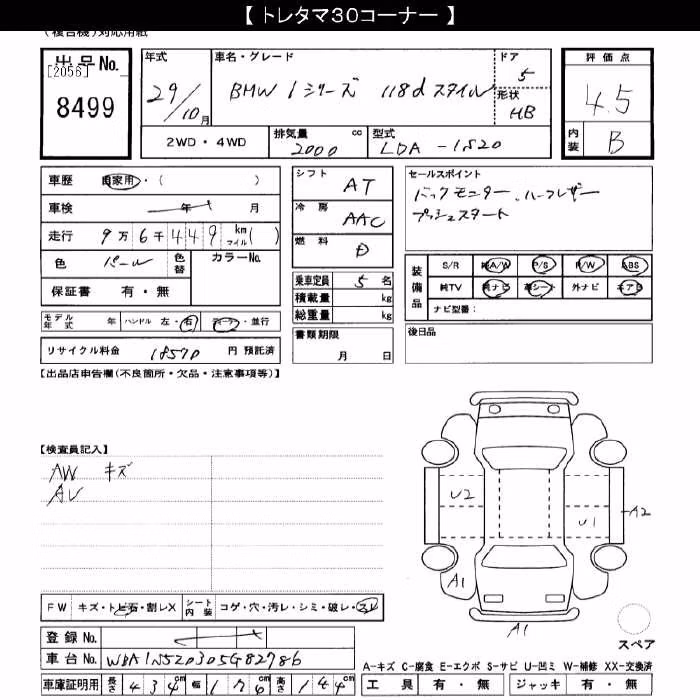 【 トレタマ30コーナー 】
(複合機)対応用紙
出品No.
[2056]
8499
年式
29/10月
車名・グレード
BMW 1シリーズ 118d スタイル
ドア
5
形状
HB
評価点
4.5
内装
B
2WD・4WD
排気量
2000
cc
型式
LDA-1S20
車歴 自家用・( )
車検 年 月
走行 9万6千449 km マイル( )
色 パール
色替
カラーNo.
保証書 有・無
シフト AT
冷房 AAC
燃料 D
乗車定員 5名
積載量 kg
総重量 kg
書類期限
月 日
セールスポイント
バックモニター、ハーフレザー
プッシュスタート
装備品
S/R 純A/W P/S P/W ABS
純TV 純ナビ 革シート 外ナビ エアB
ナビ型番:
モデル年式 年 ハンドル 左・右 ディーラー・並行
リサイクル料金 18570 円 預託済
後日品
【出品店申告欄(不良箇所・欠品・注意事項等)】
【検査員記入】
AW キズ
U2
U1
A2
A1
A1
スペア
FW キズ・トビ石・割レX
シート内装 コゲ・穴・汚レ・シミ・破レ・スレ
登録No.
車台No. WBA1N520305G82786
車庫証明用 長さ 434cm 幅 176cm 高さ 144cm
A-キズ C-腐食 E-エクボ S-サビ U-凹ミ W-補修 XX-交換済
工具 有・無 ジャッキ 有・無